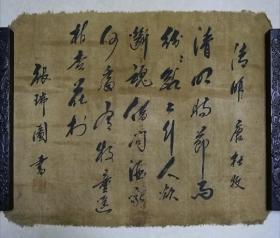 清明 唐杜牧
清明時節雨
紛々路上行人欲
斷魂借問酒家
何處有牧童遥
指杏花村
張瑞圖書